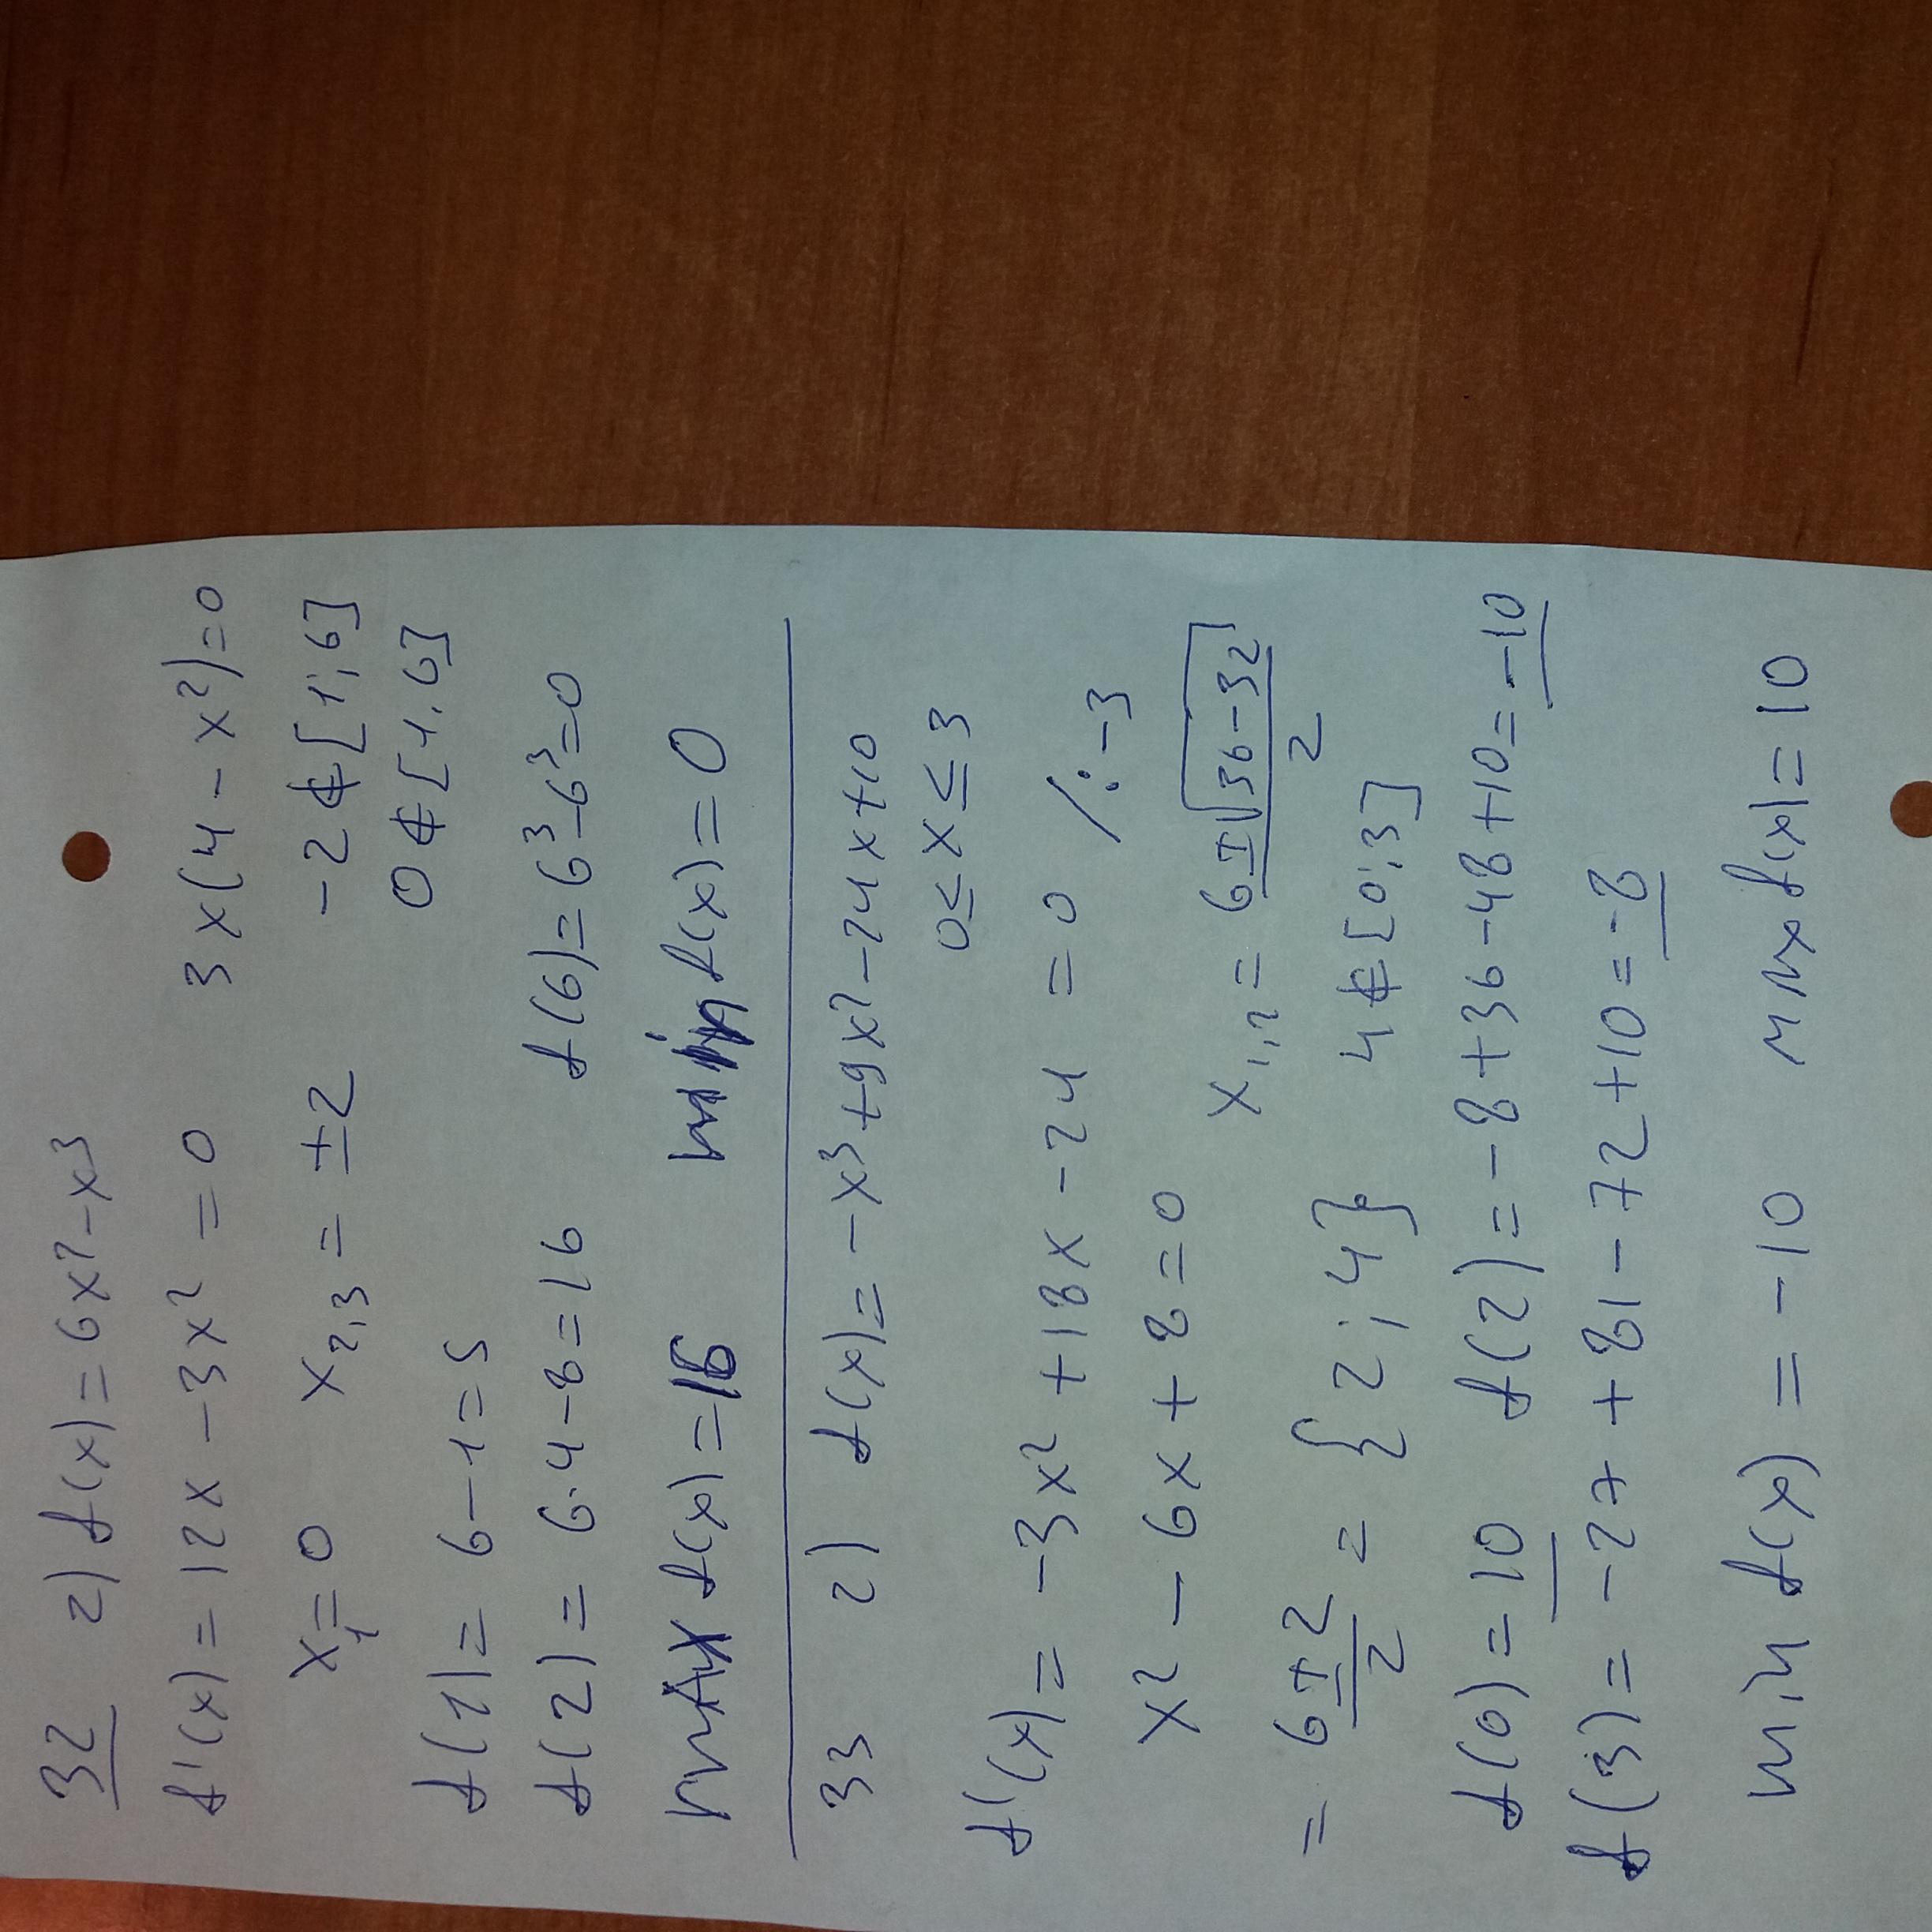 32 2) f(x) = 6x²-x³
f'(x) = 12x - 3x² = 0 3x(4-x²)=0
x₁=0 x₂,₃ = ±2 -2∉[1;6]
0∉[1,6]
f(1) = 6-1=5
f(2) = 6·4-8=16 f(6)=6³-6³=0
MAX f(x)=16 min f(x)=0
33 2) f(x)=-x³+9x²-24x+10
0≤x≤3
f'(x)= -3x²+18x-24 = 0 /:-3
x²-6x+8=0 x₁,₂ = (6±√(36-32))/2
= (6±2)/2 = {2;4} 4∉[0;3]
f(0)=10 f(2)=-8+36-48+10=-10
f(3)=-27+81-72+10=-8
min f(x) = -10 max f(x)=10